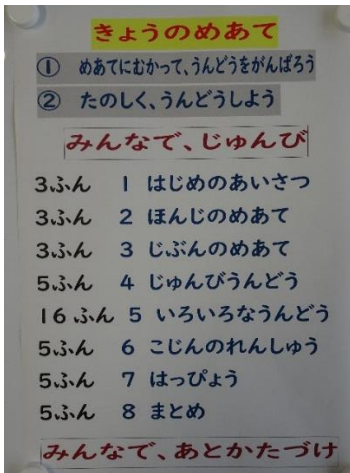 きょうのめあて
① めあてにむかって、うんどうをがんばろう
② たのしく、うんどうしよう
みんなで、じゅんび
3ふん 1 はじめのあいさつ
3ふん 2 ほんじのめあて
3ふん 3 じぶんのめあて
5ふん 4 じゅんびうんどう
16ふん 5 いろいろなうんどう
5ふん 6 こじんのれんしゅう
5ふん 7 はっぴょう
5ふん 8 まとめ
みんなで、あとかたづけ